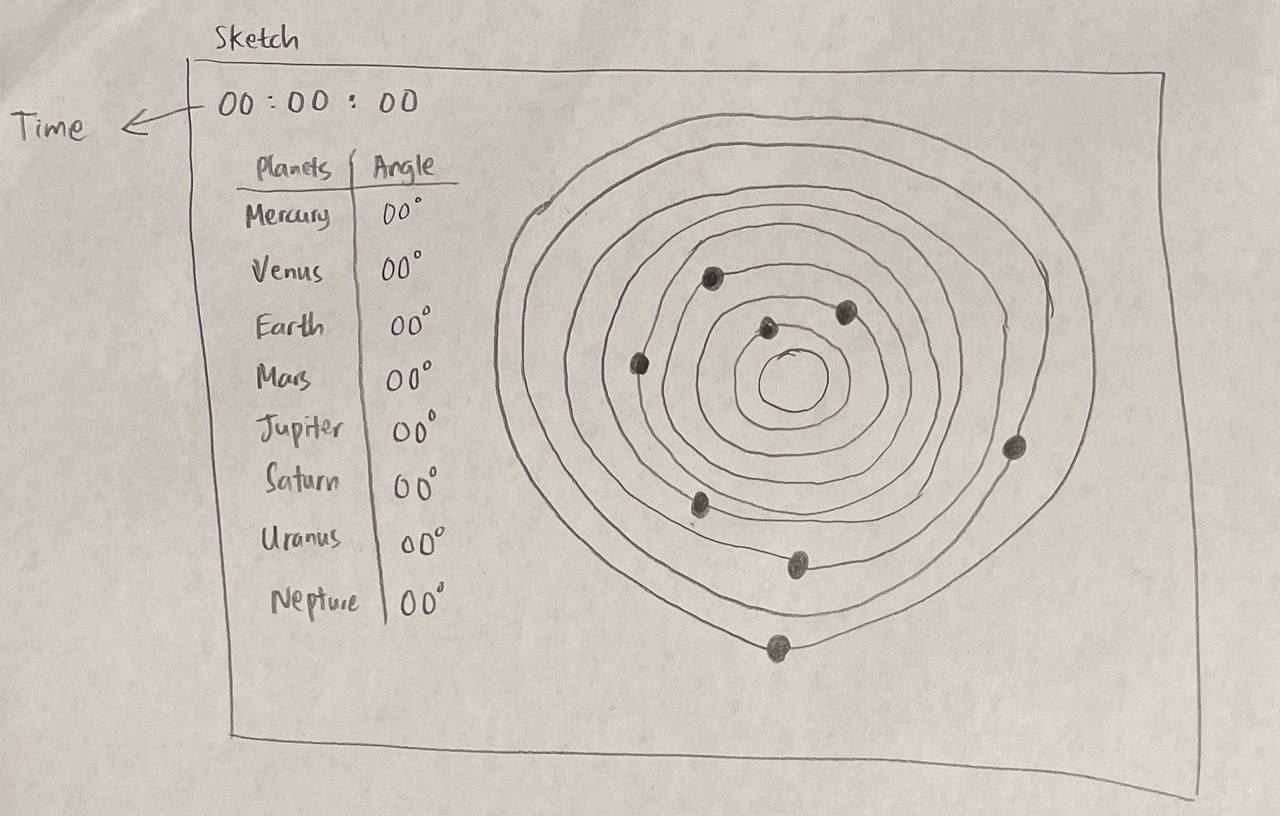 Sketch
00:00:00
Time
Planets Angle
Mercury 00°
Venus 00°
Earth 00°
Mars 00°
Jupiter 00°
Saturn 00°
Uranus 00°
Nepture 00°